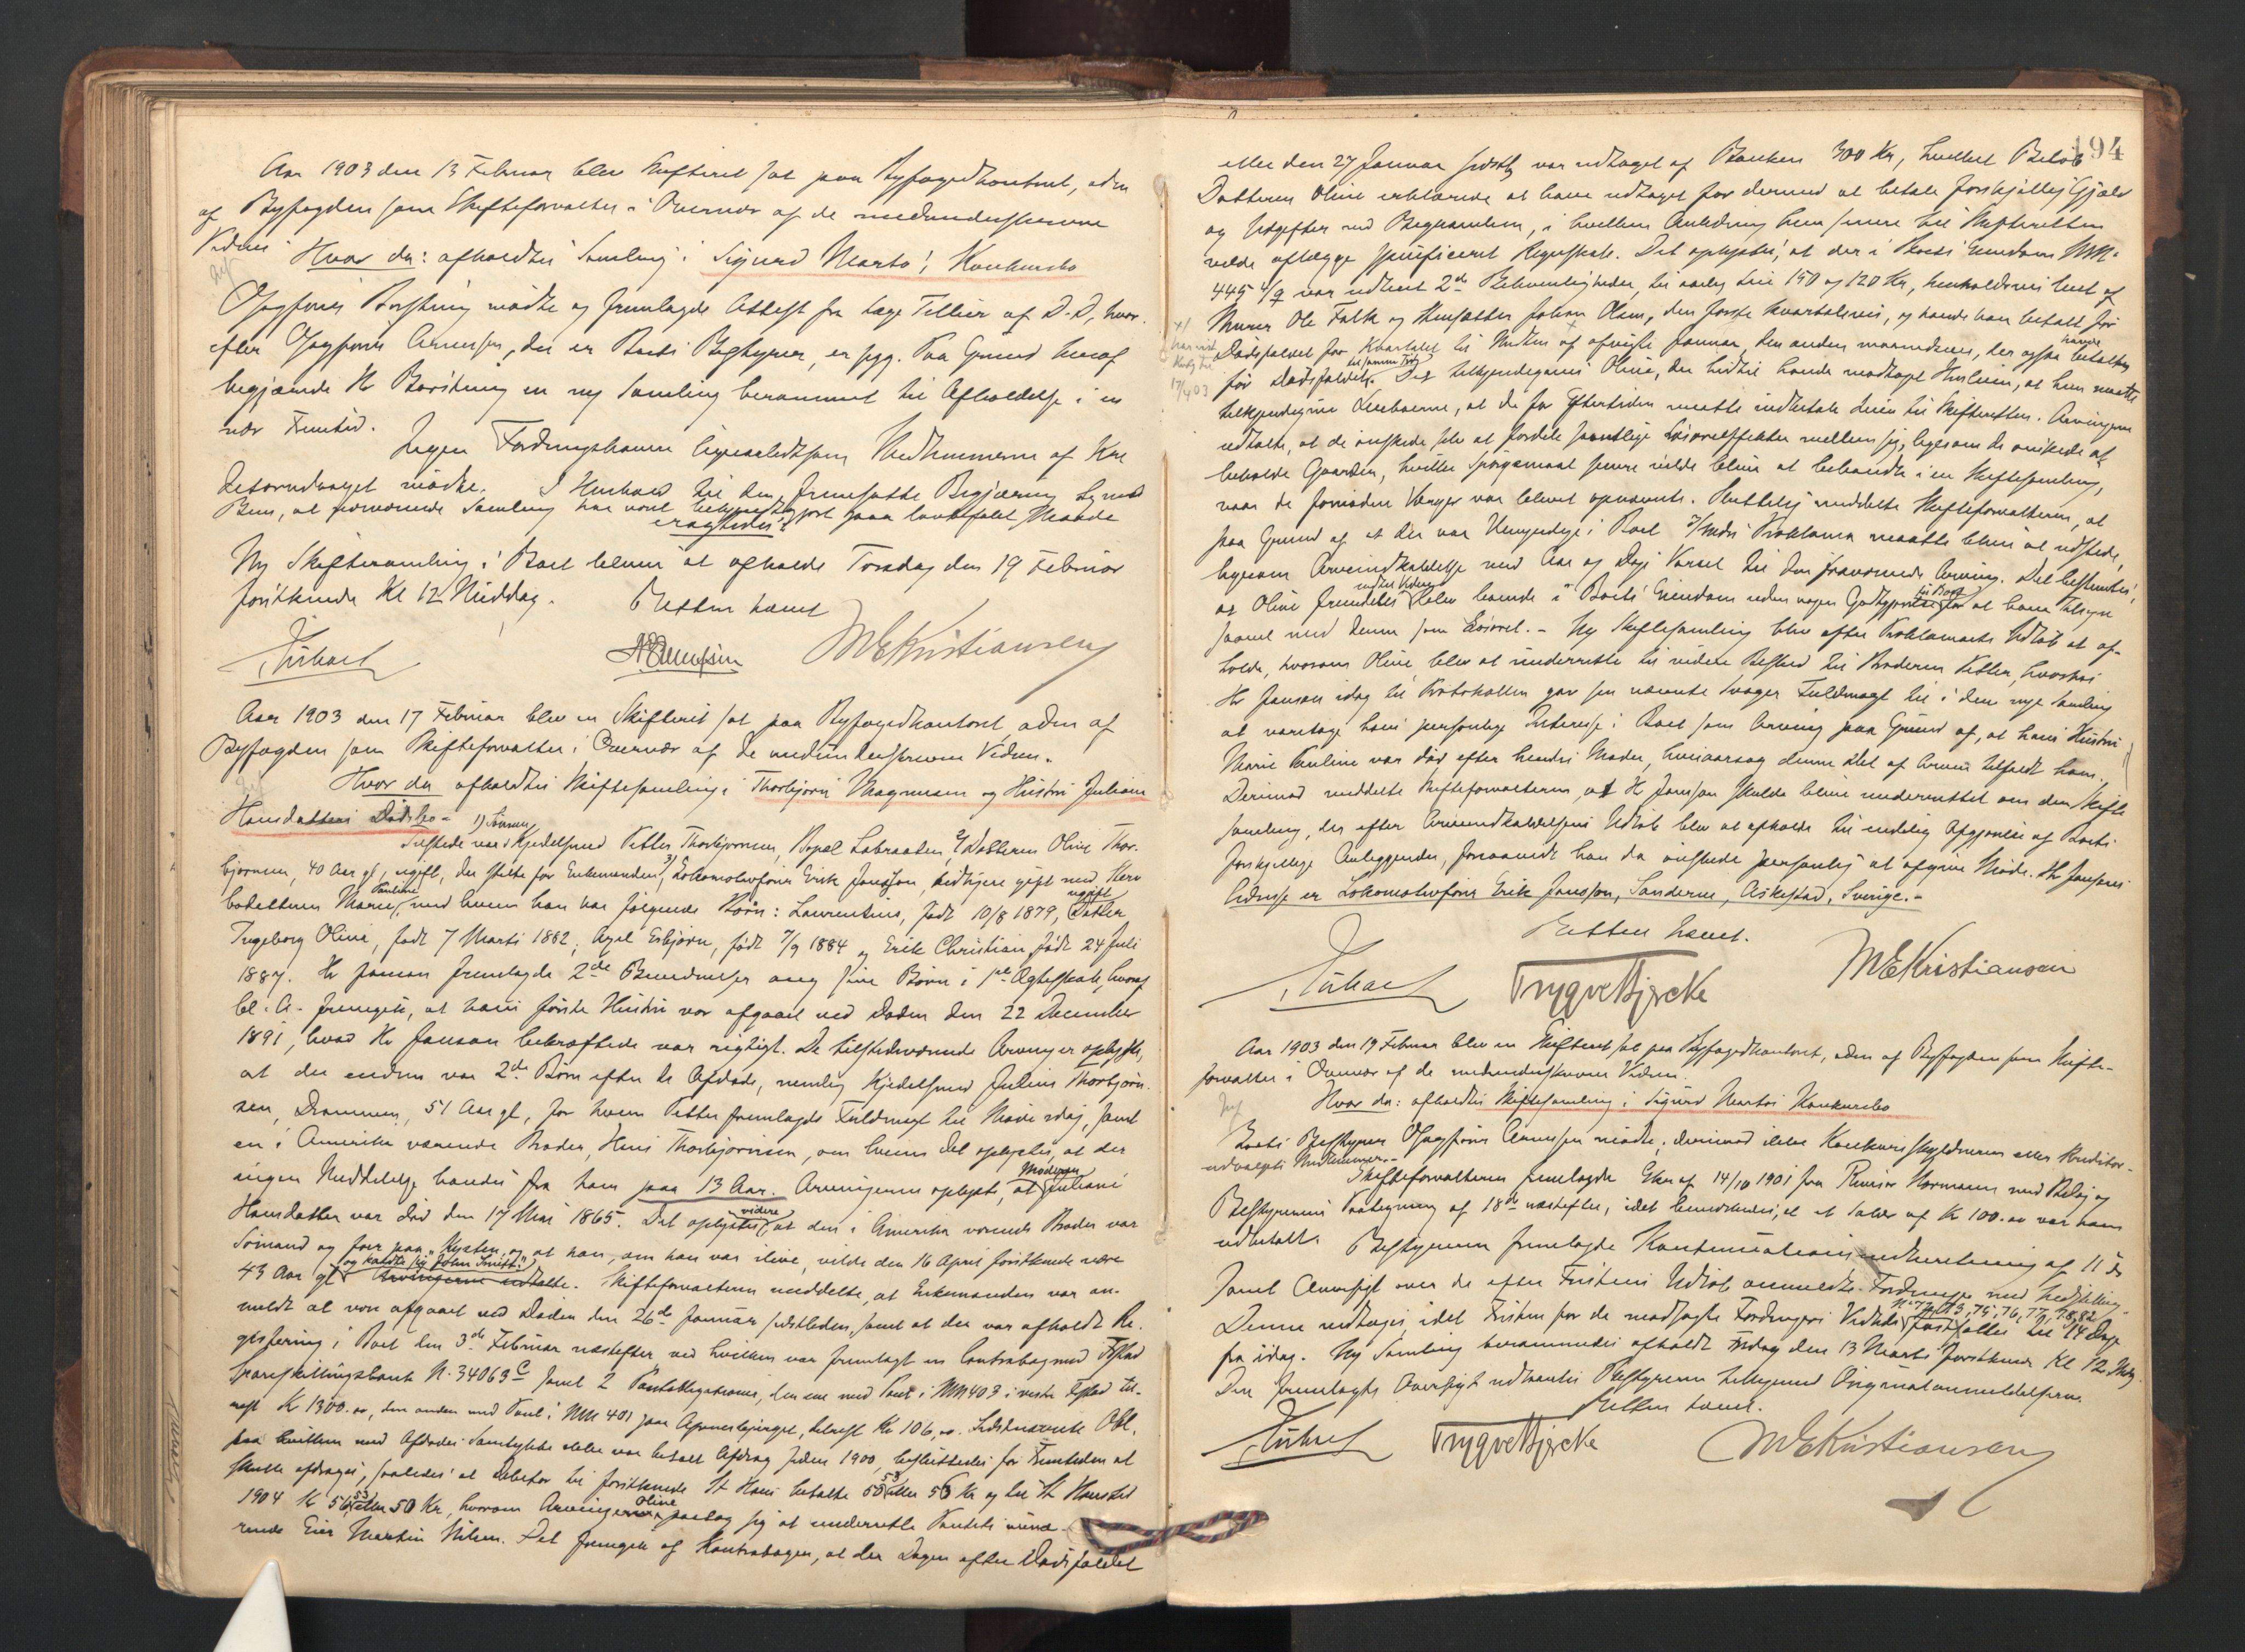 Aar 1903 den 13 Februar blev Skifteret sat paa Byfogedkontoret, adm
af Byfogden som Skifteforvalter i Overvær af de medunderskrevne
Vidner. Hvor da: afholdtes Samling i Sigurd Martos' Konkursbo
Sagfører mødte og fremlagde Attest fra Læge Tellier af D.D., hvor-
efter Sagfører Arnesen, der er Boets Bestyrer, er syg. Paa Grund heraf
begjærede Hr en ny Samling berammet til Afholdelse i en
nær Fremtid.
Ingen Fordringshavere ligesaalidt som Medlemmerne af Kre
ditorudvalget mødte. I Henhold til den fremsatte Begjæring
at nærværende Samling har været bekjendtgjort paa lovbefalet Maade
eragtedes:
Ny Skiftesamling i Boet bliver at afholde Torsdag den 19 Februar
førstkmde Kl 12 Middag.
Retten hævet
M E Kristiansen
Aar 1903 den 17 Februar blev en Skifteret sat paa Byfogedkontoret adm af
Byfogden som Skifteforvalter i Overvær af de medunderskrevne Vidner.
Hvor da afholdtes Skiftesamling i Thorbjørn Magnussen og Hustru Juliane
Hansdatters Dødsbo -
Tilstede var 1) Sønnen Kjedelsmed Petter Thorbjørnsen, Bopæl Labraaten, 2/ Datteren Oline Thor-
bjørnsen, 40 Aar gl, ugift, der stelte for Enkemanden, 3/ Lokomotivfører Erik Jansson, tidligere gift med
Marie Pauline, med hvem han har følgende Børn: Laurentius, født 10/8 1879, ugift Datter
Ingeborg Olina, født 7 Marts 1882, Axel Esbjørn, født 7/9 1884 og Erik Christian, født 24 Juli
1887. Hr Jansson fremlagde 2de Bevidnelser ang sine Børn i 1ste Ægteskab, hvoraf
bl. A. fremgik, at hans første Hustru var afgaaet ved Døden den 22 December
1891, hvad Hr Jansson bekræftede var rigtigt. De tilstedeværende Arvinger oplyste,
at der endnu var 2de Børn efter de Afdøde, nemlig Kjedelsmed Julius Thorbjørn-
sen, Drammen, 51 Aar gl, for hvem Petter fremlagde Fuldmagt til Møde idag, samt
en i Amerika værende Broder, Hans Thorbjørnsen, om hvem det oplystes, at der
ingen Meddelelse havdes fra ham paa 13 Aar. Arvingerne oplyste, at Moderen Juliane
Hansdatter var død den 17 Mai 1865. Det oplystes videre at den i Amerika værende Broder var
Sømand og foer paa "Kysten" og at han, om han var ilive, vilde den 16 April førstkmde være
43 Aar gl og kaldte sig John Smith. Arvingerne udtalte. Skifteforvalteren meddelte, at Enkemanden var an-
meldt at være afgaaet ved Døden den 26de Januar sidstleden, samt at der var afholdt Re-
gistrering i Boet den 3de Februar næstefter ved hvilken var fremlagt en Contrabog med
Spareskillingsbank N. 34063 C samt 2 Pantobligationer, den ene med Pant i MN 403 i
Kr 1300.00, den anden med Pant i MN 401 paa Kr 106,00. Sidstnævnte Obl.
paa hvilken med Afdødes Samtykke ikke var betalt Afdrag siden 1900, besluttedes for Fremtiden at
skulle afdrages, saaledes at Debitor til førstkmde St Hans betalte 53 eller 56 Kr og til St Hanstid
1904 Kr 53 eller 50 Kr, hvorom Arvingen Oline paatog sig at underrette Pantets nuvæ-
rende Eier Martin Nilsen. Det fremgik af Kontrabogen, at der Dagen efter Dødsfaldet
194
eller den 27 Januar sidstl var udtaget af Banken 300 Kr, hvilket Beløb
Datteren Oline erklærede at have udtaget for dermed at betale forskjellig Gjæld
og Udgifter ved Begravelsen, i hvilken Anledning hun senere til Skifteretten
vilde aflægge specificeret Regnskab. Det oplystes, at der i Boets Eiendom MN.
445 a/q var udleiet 2de Bekvemmeligheder, til aarlig Leie 150 og 120 Kr, henholdsvis leiet af
Murer Ole Falk og Johan Olsen, den første kvartalsvis, og havde han betalt før
Dødsfaldet for Kvartalet til Midten af afvigte Januar, den anden maanedsvis, der ogsaa havde betalt
før Dødsfaldet til samme Tid. Det tilkjendegaves Oline, der hidtil havde modtaget Husleien, at hun maatte
tilkjendegive Leieboerne, at de for Eftertiden maatte indbetale Leien til Skifteretten. Arvingerne
udtalte, at de ønskede selv at fordele samtlige Løsøreeffekter mellem sig, ligesom de ønskede at
beholde Gaarden, hvilket Spørgsmaal senere vilde blive at behandle i en Skiftesamling,
naar de fornødne Værger var blevet opnævnte. Sluttelig meddelte Skifteforvalteren, at
paa Grund af at der var Umyndige i Boet Proklama maatte blive at udstede,
ligesom Arveindkaldelse med Aar og Dags Varsel til den fraværende Arving. Det besluttedes,
at Oline fremdeles indtil Videre blev boende i Boets Eiendom uden nogen Godtgjørelse til Boet for at have Tilsyn
saavel med denne som Løsøret. - Ny Skiftesamling blev efter Proklamaets Udløb at af-
holde, hvorom Oline blev at underrette til videre Besked til Broderen Petter, hvorhos
Hr Jansson idag til Protokollen gav sin nævnte Svoger Fuldmagt til i den nye Samling
at varetage hans personlige Interesse i Boet som Arving paa Grund af, at hans Hustru
Marie Pauline var død efter hendes Moder, hvisaarsag denne Del af Arven tilfaldt ham.
Derimod meddelte Skifteforvalteren, at Hr Jansson skulde blive underrettet om den Skifte
samling, der efter Arveindkaldelsens Udløb blev at afholde til endelig Afgjørelse af Boets
forskjellige Anliggender, forsaavidt han da ønskede personlig at afgive Møde. Hr Janssons
Adresse er Lokomotivfører Erik Jansson, Sanderne, Askestad, Sverige. -
Retten hævet.
Trygve Bjercke
M E Kristiansen
Aar 1903 den 19 Februar blev en Skifteret sat paa Byfogedkontoret, adm af Byfogden som Skifte-
forvalter i Overvær af de medunderskrevne Vidner.
Hvor da: afholdtes Skiftesamling i Sigurd Martos Konkursbo
Boets Bestyrer Sagfører Arnesen mødte, derimod ikke Konkursskyldneren eller Kreditor-
udvalgets Medlemmer. -
Skifteforvalteren fremlagde Skr af 14/10 1901 fra Revisor Hormann med Bilag og
Bestyrerens Paategning af 18de næstefter, idet bemærkedes, at et Salær af Kr 100.00 var ham
udbetalt. Bestyreren fremlagde af 11 ds
samt Oversigt over de efter Fristens Udløb anmeldte Fordringer med Indstilling.
Denne vedtages idet Fristen for de modsagte Fordringers Vedk fastsattes til 14 Dage
fra idag. Ny Samling berammedes afholdt Fredag den 13 Marts førstkmde Kl 12 Mdg
Den fremlagte Oversigt udlaantes Bestyreren tilligemed Originalanmeldelserne.
Retten hævet.
Trygve Bjercke
M E Kristiansen